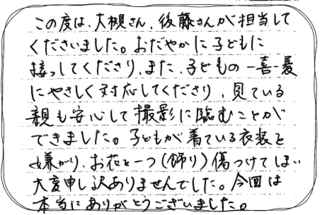 この度は、大槻さん、後藤さんが担当して
くださいました。おだやかに子どもに
接してくださり、また、子どもの一喜一憂
にやさしく対応してくださり、見ている
親も安心して撮影に臨むことが
できました。子どもが着ている衣装を
嫌がり、お花を一つ(飾り)傷つけてしまい
大変申し訳ありませんでした。今回は
本当にありがとうございました。